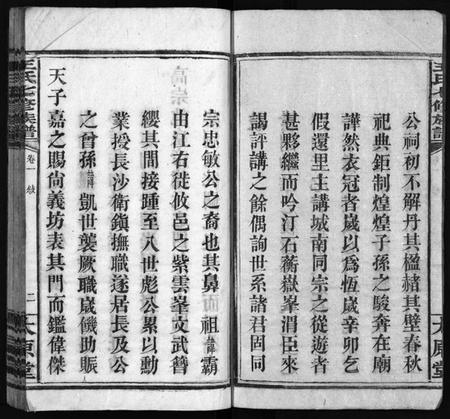 王氏七修族譜
太原堂
公祠初不解丹其楹赭其壁春秋
祀典鉅制煌煌子孫之駿奔在廟
譁然衣冠者歲以爲恆歲辛卯乞
假還里主講城南同宗之從遊者
甚夥繼而吟汀石蘅嶽峯涓臣來
謁評講之餘偶詢世系諸君固同
宗忠敏公之裔也其鼻而祖諱霸
由江右徙攸邑之紫雲峯文武簪
纓其間接踵至八世彪公累以勳
業授長沙衛鎮撫職遂居長及公
之曾孫諱凱世襲厥職歲饑助賑
天子嘉之賜尚義坊表其門而鑑偉傑
王氏七修族譜
卷一
二
太原堂